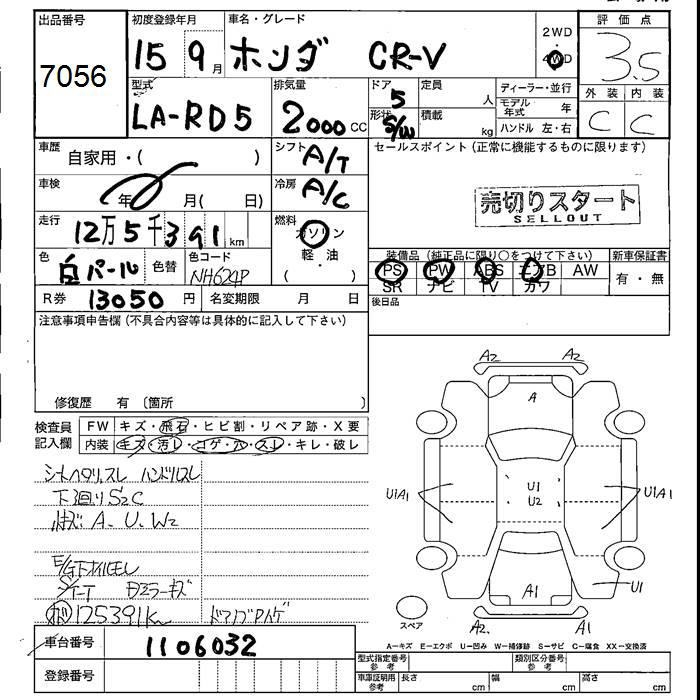 出品番号 初度登録年月 車名・グレード 2WD 評価点
7056 15 9月 ホンダ CR-V 4WD 3.5
型式 排気量 ドア 5 定員 人 ディーラー・並行 外装 内装
LA-RD5 2000cc 形状 S/W 積載 kg モデル年式 年 C C
ハンドル 左・右
車歴 自家用・( ) シフト A/T セールスポイント (正常に機能するものに限ります)
車検 年 月( 日) 冷房 A/C
売切りスタート
SELLOUT
走行 12万5千391km 燃料 ガソリン
軽・油
色 白パール 色替 色コード NH624P ( )
装備品 (純正品に限り○をつけて下さい) 新車保証書
PS PW ABS エアB AW 有・無
SR ナビ TV カワ
R券 13050円 名変期限 月 日
後日品
注意事項申告欄 (不具合内容等は具体的に記入して下さい)
修復歴 有 〔箇所 〕
検査員記入欄 FW キズ・飛石・ヒビ割・リペア跡・X要
内装 キズ・汚レ・コゲ・穴・スレ・キレ・破レ
シートヘタリ、スレ ハンドルスレ
下廻りS2C
A、U、W2
E/G下オイルモレ
ミラーキズ
125391km
車台番号 1106032
登録番号
A2 A2
A
U1A1 U1 U1A1
U2
A1 U1
スペア A2 A1
A-キズ E-エクボ U-凹み W-補修跡 S-サビ C-腐食 XX-交換済
型式指定番号 参考 類別区分番号 参考
車庫証明用 参考 長さ cm 幅 cm 高さ cm